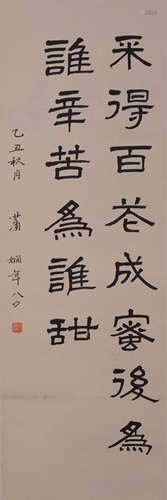 采得百花成蜜後為
誰辛苦為誰甜
乙丑秋月 蕭嫻年八〇